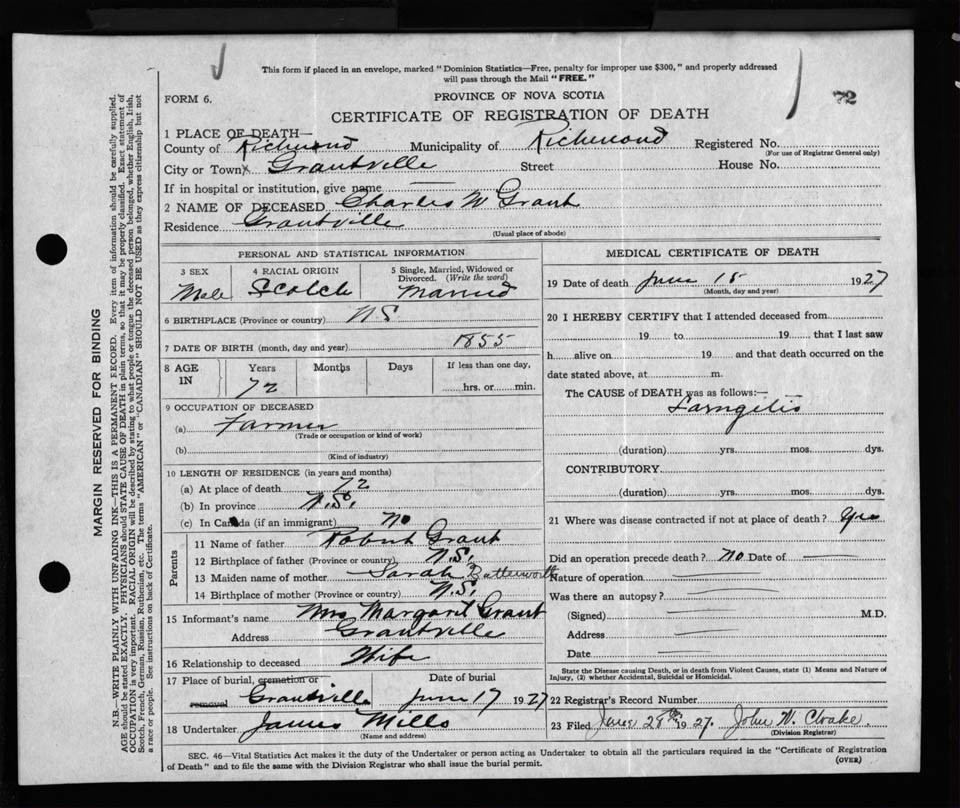 This form if placed in an envelope, marked "Dominion Statistics—Free, penalty for improper use $300," and properly addressed
will pass through the Mail "FREE."
72
FORM 6.
PROVINCE OF NOVA SCOTIA
CERTIFICATE OF REGISTRATION OF DEATH
1 PLACE OF DEATH—
County of Richmond Municipality of Richmond Registered No.
(For use of Registrar General only)
City or Town Grantville Street House No.
If in hospital or institution, give name —
2 NAME OF DECEASED Charles W Grant
Residence Grantville
(Usual place of abode)
PERSONAL AND STATISTICAL INFORMATION
3 SEX 4 RACIAL ORIGIN 5 Single, Married, Widowed or
Divorced. (Write the word)
Male Scotch Married
6 BIRTHPLACE (Province or country) N S
7 DATE OF BIRTH (month, day and year) 1855
8 AGE IN Years Months Days If less than one day,
72 hrs. or min.
9 OCCUPATION OF DECEASED
(a) Farmer
(Trade or occupation or kind of work)
(b)
(Kind of industry)
10 LENGTH OF RESIDENCE (in years and months)
(a) At place of death 72
(b) In province N.S.
(c) In Canada (if an immigrant) No
Parents
11 Name of father Robert Grant
12 Birthplace of father (Province or country) N.S.
13 Maiden name of mother Sarah Butterworth
14 Birthplace of mother (Province or country) N.S.
15 Informant's name Mrs Margaret Grant
Address Grantville
16 Relationship to deceased Wife
17 Place of burial, cremation or removal Date of burial
Grantville June 17 1927
18 Undertaker James Mills
(Name and address)
MEDICAL CERTIFICATE OF DEATH
19 Date of death June 15 1927
(Month, day and year)
20 I HEREBY CERTIFY that I attended deceased from
19 to 19 that I last saw
h alive on 19 and that death occurred on the
date stated above, at m.
The CAUSE of DEATH was as follows:—
Larngitis
(duration) yrs. mos. dys.
CONTRIBUTORY
(duration) yrs. mos. dys.
21 Where was disease contracted if not at place of death? Yes
Did an operation precede death? No Date of —
Nature of operation —
Was there an autopsy? —
(Signed) — M.D.
Address —
Date —
State the Disease causing Death, or in death from Violent Causes, state (1) Means and Nature of
Injury, (2) whether Accidental, Suicidal or Homicidal.
22 Registrar's Record Number
23 Filed June 28th 1927. John W. Cloake
(Division Registrar)
SEC. 46—Vital Statistics Act makes it the duty of the Undertaker or person acting as Undertaker to obtain all the particulars required in the "Certificate of Registration
of Death" and to file the same with the Division Registrar who shall issue the burial permit.
(OVER)
MARGIN RESERVED FOR BINDING
N.B.—WRITE PLAINLY WITH UNFADING INK—THIS IS A PERMANENT RECORD. Every item of information should be carefully supplied.
AGE should be stated EXACTLY. PHYSICIANS should STATE CAUSE OF DEATH in plain terms, so that it may be properly classified. Exact statement of
OCCUPATION is very important. RACIAL ORIGIN will be described by stating to what people or tongue the deceased person belonged, whether English, Irish,
Scotch, French, German, Russian, Ruthenian, etc. The terms "AMERICAN" or "CANADIAN" SHOULD NOT BE USED as they express citizenship but not
a race or people. See instructions on back of Certificate.